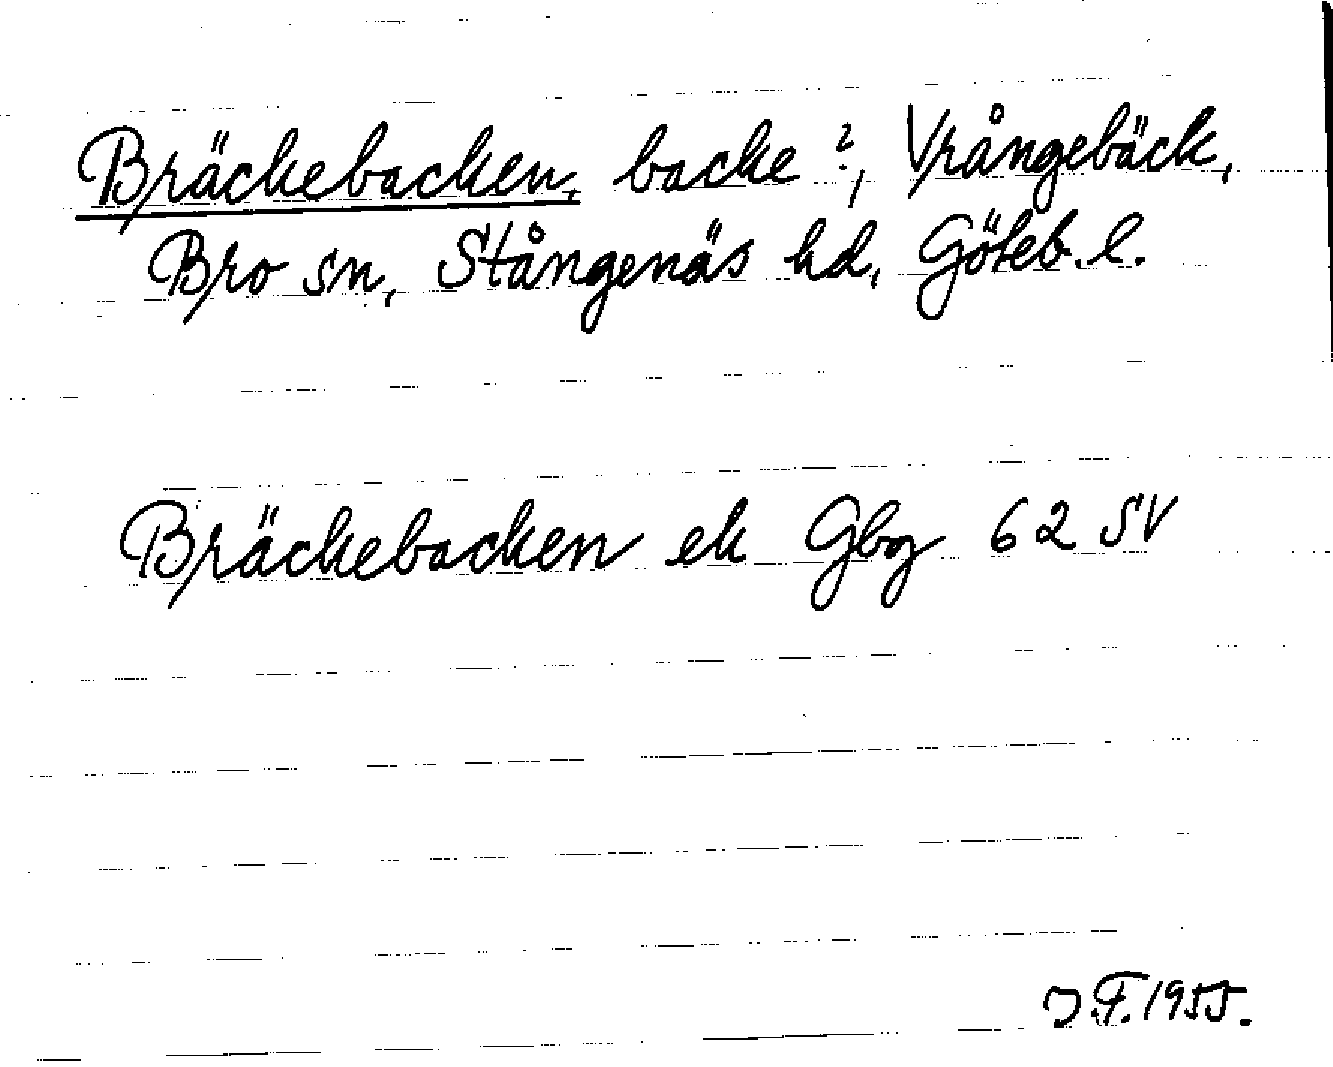 Bräckebacken, backe ?, Vrångebäck,
Bro sn, Stångenäs hd, Göteb. l.
Bräckebacken ek Gbg 62 SV
J.F. 1955.